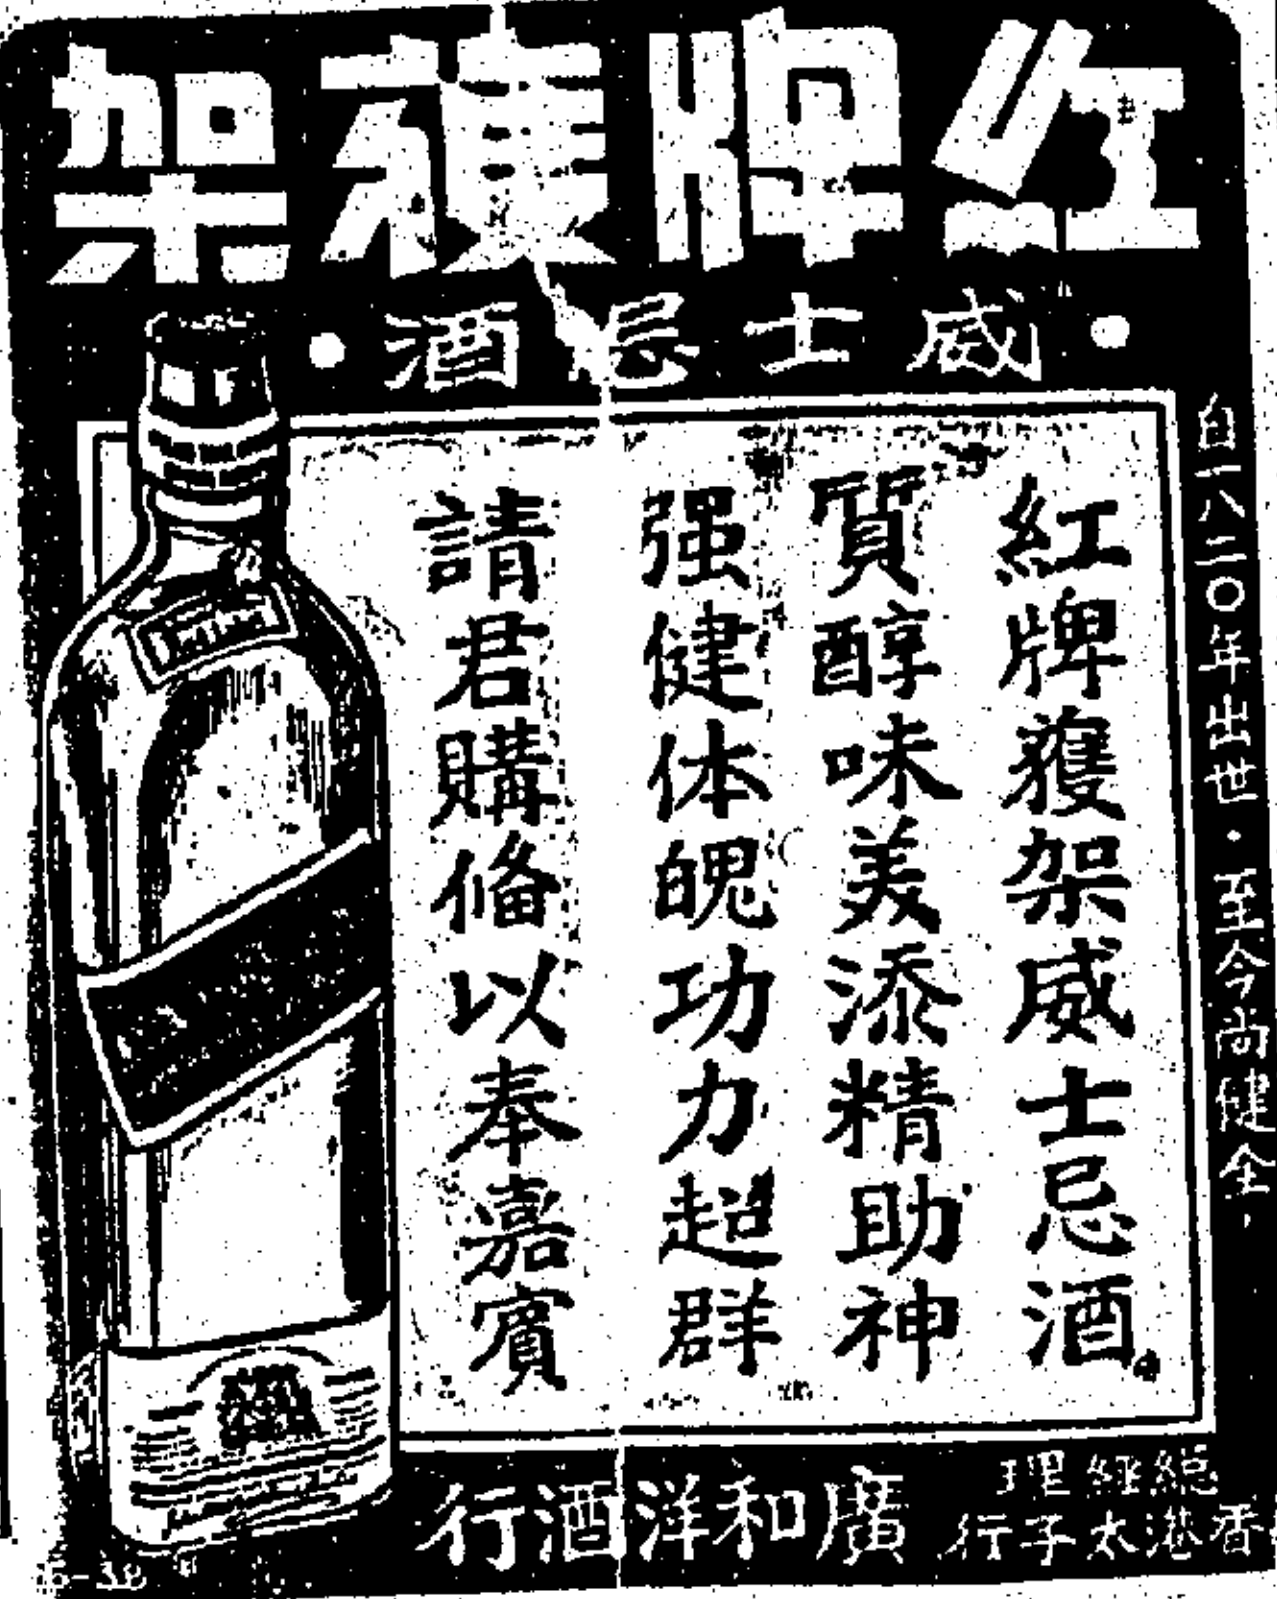 紅牌穫架
威士忌酒
自一八二〇年出世・至今尚健全,
紅牌穫架威士忌酒
質醇味美添精助神
强健体魄功力超群
請君購俻以奉嘉賓
總經理
香港太子行
廣和洋酒行